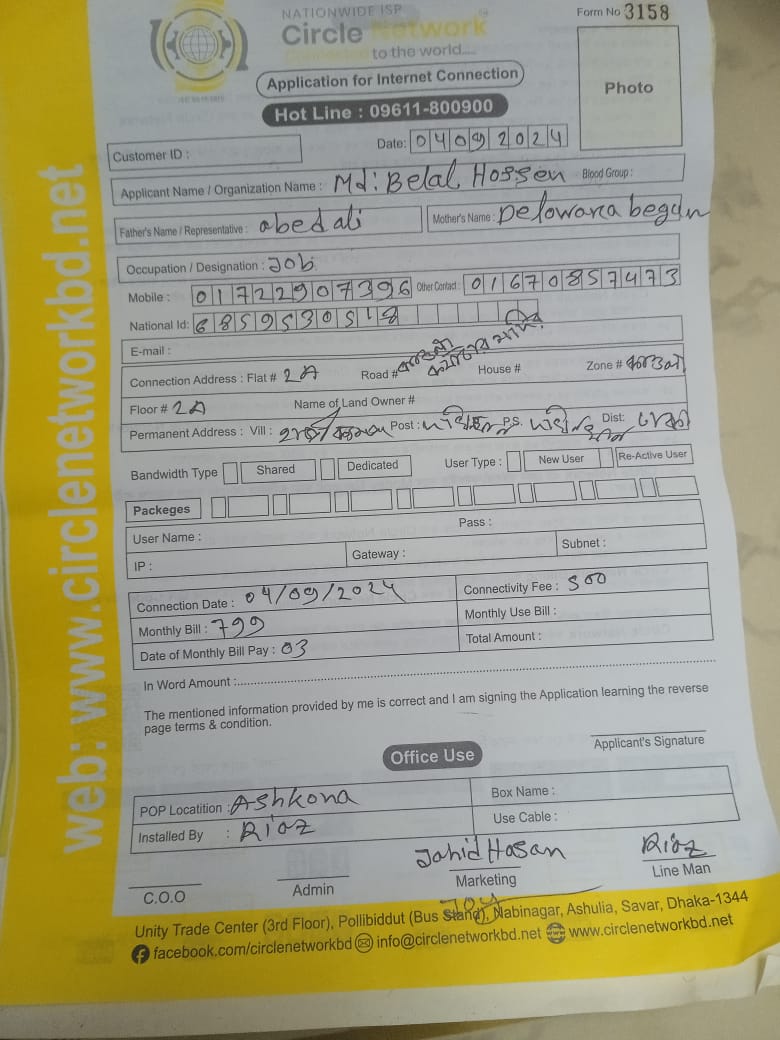 NATIONWIDE ISP
Form No 3158
Circle Network
Connected to the world....
Application for Internet Connection
Photo
Hot Line : 09611-800900
Date: 04092024
Customer ID :
Applicant Name / Organization Name : Md: Belal Hossen Blood Group :
Father's Name / Representative : abed ali Mother's Name : Delowara begun
Occupation / Designation : Job
Mobile : 01722907396 Other Contact : 01670857473
National Id: 6859530518
E-mail :
Connection Address : Flat # 2A Road # House # Zone #
Floor # 2A Name of Land Owner #
Permanent Address : Vill : Post : P.S. Dist: ঢাকা
Bandwidth Type Shared Dedicated User Type : New User Re-Active User
Packeges
User Name : Pass :
IP : Gateway : Subnet :
Connection Date : 04/09/2024 Connectivity Fee : 500
Monthly Bill : 799 Monthly Use Bill :
Date of Monthly Bill Pay : 03 Total Amount :
In Word Amount :
The mentioned information provided by me is correct and I am signing the Application learning the reverse
page terms & condition.
Applicant's Signature
Office Use
POP Locatition : Ashkona Box Name :
Installed By : Riaz Use Cable :
Jahid Hasan Riaz
C.O.O Admin Marketing Line Man
Joy
Unity Trade Center (3rd Floor), Pollibiddut (Bus Stand), Nabinagar, Ashulia, Savar, Dhaka-1344
facebook.com/circlenetworkbd info@circlenetworkbd.net www.circlenetworkbd.net
web: www.circlenetworkbd.net